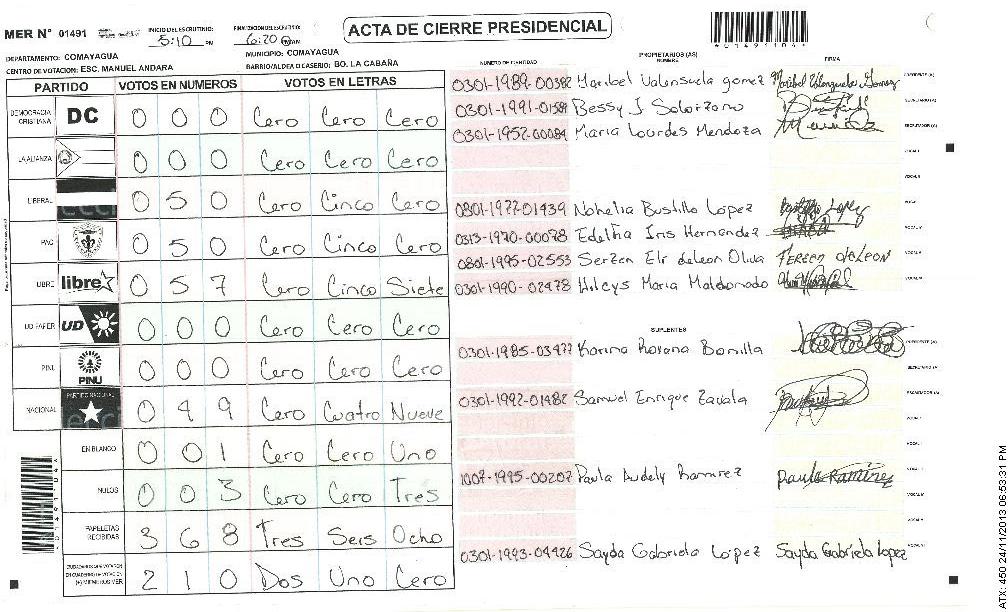 MER Nº 01491
INICIO DEL ESCRUTINIO:
5:10 PM
FINALIZACION DEL ESCRUTINIO:
6:20 PM
ACTA DE CIERRE PRESIDENCIAL
DEPARTAMENTO: COMAYAGUA
MUNICIPIO: COMAYAGUA
CENTRO DE VOTACION: ESC. MANUEL ANDARA
BARRIO/ALDEA O CASERIO: BO. LA CABAÑA
PARTIDO VOTOS EN NUMEROS VOTOS EN LETRAS
DEMOCRACIA CRISTIANA DC 0 0 0 Cero Cero Cero
LA ALIANZA 0 0 0 Cero Cero Cero
LIBERAL 0 5 0 Cero Cinco Cero
PAC 0 5 0 Cero Cinco Cero
LIBRE libre 0 5 7 Cero Cinco Siete
UD FAPER UD 0 0 0 Cero Cero Cero
PINU PINU 0 0 0 Cero Cero Cero
NACIONAL PARTIDO NACIONAL 0 4 9 Cero Cuatro Nueve
EN BLANCO 0 0 1 Cero Cero Uno
NULOS 0 0 3 Cero Cero Tres
PAPELETAS RECIBIDAS 3 6 8 Tres Seis Ocho
CIUDADANOS QUE VOTARON EN CUADERNO DE VOTACION (+) MIEMBROS MER 2 1 0 Dos Uno Cero
NUMERO DE IDENTIDAD
PROPIETARIOS (AS)
NOMBRE
FIRMA
0301-1989-00382 Maribel Valensuela gomez Maribel Valenzuela Gomez PRESIDENTE (A)
0301-1991-01584 Bessy J Solorzano SECRETARIO (A)
0301-1952-00084 Maria Lourdes Mendoza ESCRUTADOR (A)
VOCAL I
0801-1977-01439 Nohelia Bustillo Lopez
0313-1970-00078 Edeltha Iris Hernandez
0801-1995-02553 Serzen Elr deleon Oliva
0301-1990-02478 Hilcys Maria Maldonado
SUPLENTES
0301-1985-03477 Karina Roxana Bonilla PRESIDENTE (A)
SECRETARIO (A)
0301-1992-01482 Samuel Enrique Zavala ESCRUTADOR (A)
1007-1995-00202 Paula Audely Ramirez Paula Ramirez
0301-1993-04426 Sayda Gabriela López Sayda Gabriela Lopez
ATX: 450 24/11/2013 06:53:31 PM